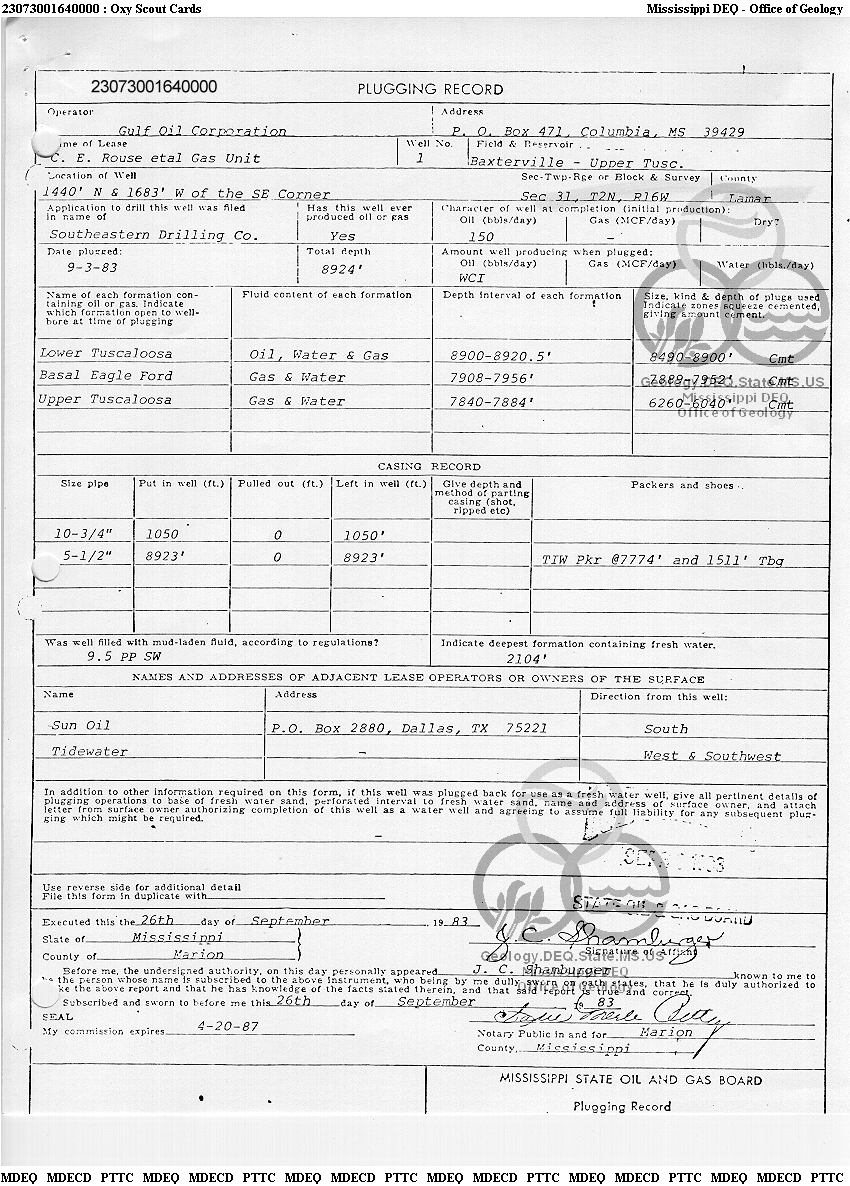 23073001640000 : Oxy Scout Cards Mississippi DEQ - Office of Geology
23073001640000 PLUGGING RECORD
Operator Address
Gulf Oil Corporation P. O. Box 471, Columbia, MS 39429
ame of Lease Well No. Field & Reservoir
C. E. Rouse etal Gas Unit 1 Baxterville - Upper Tusc.
Location of Well Sec-Twp-Rge or Block & Survey County
1440' N & 1683' W of the SE Corner Sec 31, T2N, R16W Lamar
Application to drill this well was filed Has this well ever Character of well at completion (initial production):
in name of produced oil or gas Oil (bbls/day) Gas (MCF/day) Dry?
Southeastern Drilling Co. Yes 150 -
Date plugged: Total depth Amount well producing when plugged:
9-3-83 8924' Oil (bbls/day) Gas (MCF/day) Water (bbls./day)
WCI
Name of each formation con- Fluid content of each formation Depth interval of each formation Size, kind & depth of plugs used
taining oil or gas. Indicate Indicate zones squeeze cemented,
which formation open to well- giving amount cement.
bore at time of plugging
Lower Tuscaloosa Oil, Water & Gas 8900-8920.5' 8490-8900' Cmt
Basal Eagle Ford Gas & Water 7908-7956' 7889-7952' Cmt
Geology.DEQ.State.MS.US
Upper Tuscaloosa Gas & Water 7840-7884' 6260-6040' Cmt
Mississippi DEQ
Office of Geology
CASING RECORD
Size pipe Put in well (ft.) Pulled out (ft.) Left in well (ft.) Give depth and Packers and shoes
method of parting
casing (shot,
ripped etc)
10-3/4" 1050 0 1050'
5-1/2" 8923' 0 8923' TIW Pkr @7774' and 1511' Tbg
Was well filled with mud-laden fluid, according to regulations? Indicate deepest formation containing fresh water.
9.5 PP SW 2104'
NAMES AND ADDRESSES OF ADJACENT LEASE OPERATORS OR OWNERS OF THE SURFACE
Name Address Direction from this well:
Sun Oil P.O. Box 2880, Dallas, TX 75221 South
Tidewater - West & Southwest
In addition to other information required on this form, if this well was plugged back for use as a fresh water well, give all pertinent details of
plugging operations to base of fresh water sand, perforated interval to fresh water sand, name and address of surface owner, and attach
letter from surface owner authorizing completion of this well as a water well and agreeing to assume full liability for any subsequent plug-
ging which might be required.
-
Use reverse side for additional detail
File this form in duplicate with
Executed this the 26th day of September 19 83
State of Mississippi J. C. Shamburger
Signature of Affiant
County of Marion Geology.DEQ.State.MS.US
Before me, the undersigned authority, on this day personally appeared J. C. Shamburger known to me to
be the person whose name is subscribed to the above instrument, who being by me dully sworn on oath states, that he is duly authorized to
ke the above report and that he has knowledge of the facts stated therein, and that said report is true and correct.
Subscribed and sworn to before me this 26th day of September 83
SEAL
My commission expires 4-20-87 Notary Public in and for Marion
County, Mississippi
MISSISSIPPI STATE OIL AND GAS BOARD
Plugging Record
MDEQ MDECD PTTC MDEQ MDECD PTTC MDEQ MDECD PTTC MDEQ MDECD PTTC MDEQ MDECD PTTC MDEQ MDECD PTTC